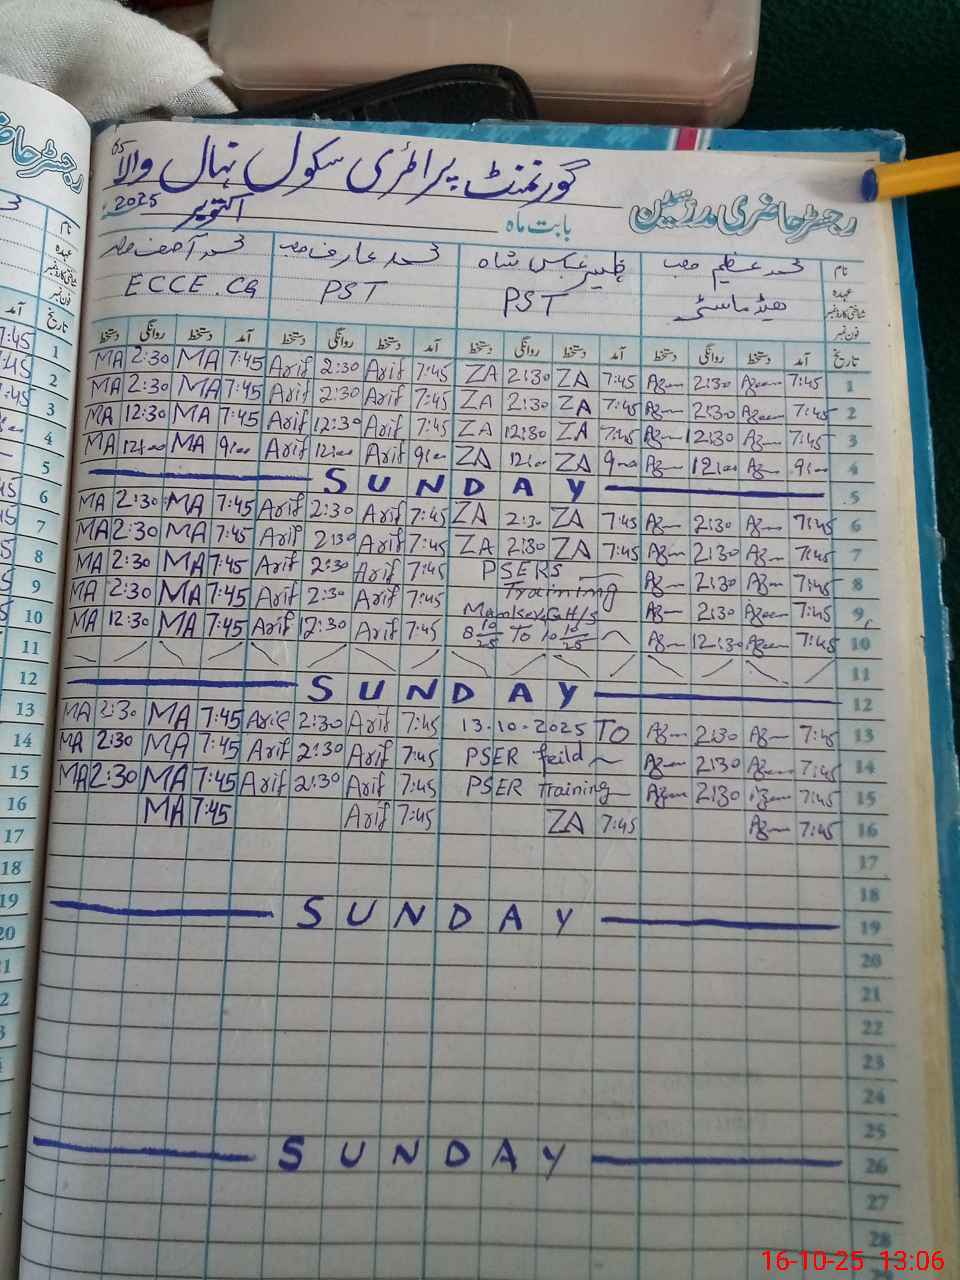 65
گورنمنٹ پرائمری سکول نہال والا
رجسٹر حاضری مدرسین
بابت ماہ اکتوبر 2025
نام محمد عظیم صاحب ظہیر عباس شاہ محمد عارف صاحب محمد آصف صاحب
عہدہ ہیڈ ماسٹر PST PST ECCE.CG
شناختی کارڈ نمبر
فون نمبر
تاریخ آمد دستخط روانگی دستخط آمد دستخط روانگی دستخط آمد دستخط روانگی دستخط آمد دستخط روانگی دستخط
MA 2:30 MA 7:45 Arif 2:30 Arif 7:45 ZA 2:30 ZA 7:45 Azeem 2:30 Azeem 7:45 1
MA 2:30 MA 7:45 Arif 2:30 Arif 7:45 ZA 2:30 ZA 7:45 Azeem 2:30 Azeem 7:45 2
MA 12:30 MA 7:45 Arif 12:30 Arif 7:45 ZA 12:30 ZA 7:45 Azeem 12:30 Azeem 7:45 3
MA 12:00 MA 9:00 Arif 12:00 Arif 9:00 ZA 12:00 ZA 9:00 Azeem 12:00 Azeem 9:00 4
SUNDAY 5
MA 2:30 MA 7:45 Arif 2:30 Arif 7:45 ZA 2:30 ZA 7:45 Azeem 2:30 Azeem 7:45 6
MA 2:30 MA 7:45 Arif 2:30 Arif 7:45 ZA 2:30 ZA 7:45 Azeem 2:30 Azeem 7:45 7
MA 2:30 MA 7:45 Arif 2:30 Arif 7:45 PSERS Azeem 2:30 Azeem 7:45 8
MA 2:30 MA 7:45 Arif 2:30 Arif 7:45 Training Azeem 2:30 Azeem 7:45 9
MA 12:30 MA 7:45 Arif 12:30 Arif 7:45 G.H/S 8 10/25 To 10 10/25 Azeem 12:30 Azeem 7:45 10
11
SUNDAY 12
MA 2:30 MA 7:45 Arif 2:30 Arif 7:45 13-10-2025 TO Azeem 2:30 Azeem 7:45 13
MA 2:30 MA 7:45 Arif 2:30 Arif 7:45 PSER feild Azeem 2:30 Azeem 7:45 14
MA 2:30 MA 7:45 Arif 2:30 Arif 7:45 PSER training Azeem 2:30 Azeem 7:45 15
MA 7:45 Arif 7:45 ZA 7:45 Azeem 7:45 16
17
18
SUNDAY 19
20
21
22
23
24
25
SUNDAY 26
27
28
16-10-25 13:06